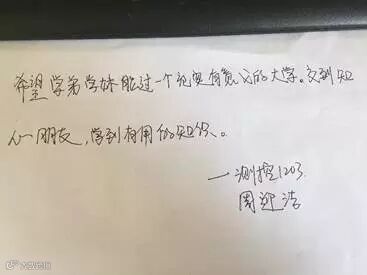 希望学弟学妹能过一个充实有意义的大学。交到知
心朋友,学到有用的知识。
—测控1203
周迎浩